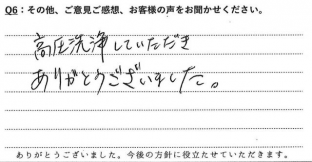 Q6：その他、ご意見ご感想、お客様の声をお聞かせください。
高圧洗浄していただき
ありがとうございました。
ありがとうございました。今後の方針に役立たせていただきます。